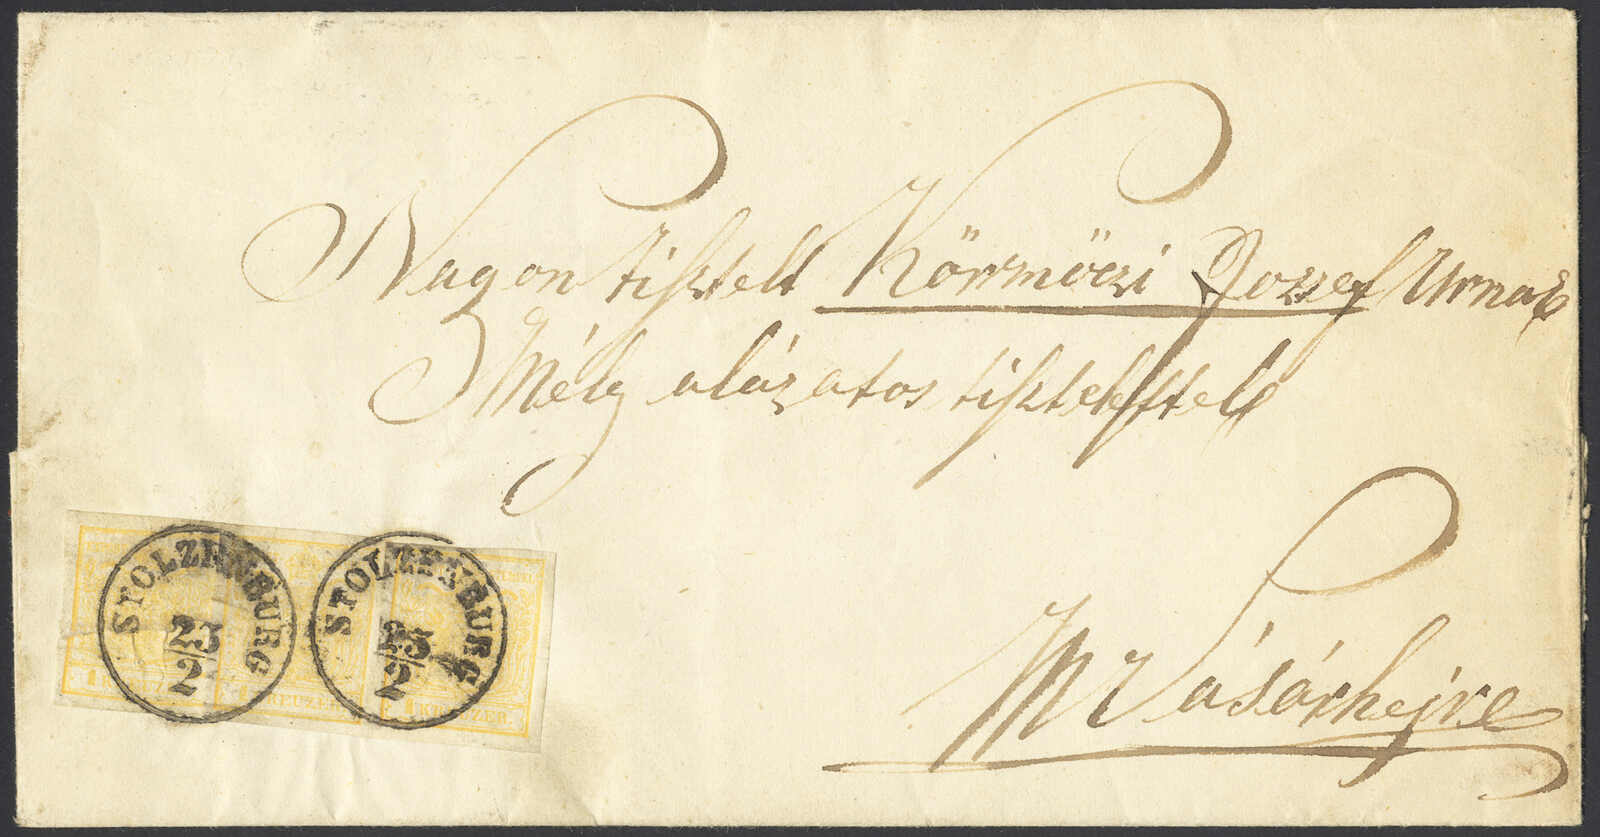 Nagyon tisztelt Körmöczi Jozsef Urnak
Mély alázatos tisztelettel
M Vásárhejre
STOLZENBURG
23/2
STOLZENBURG
23/2
1
1 KREUZER.
1 KREUZER.